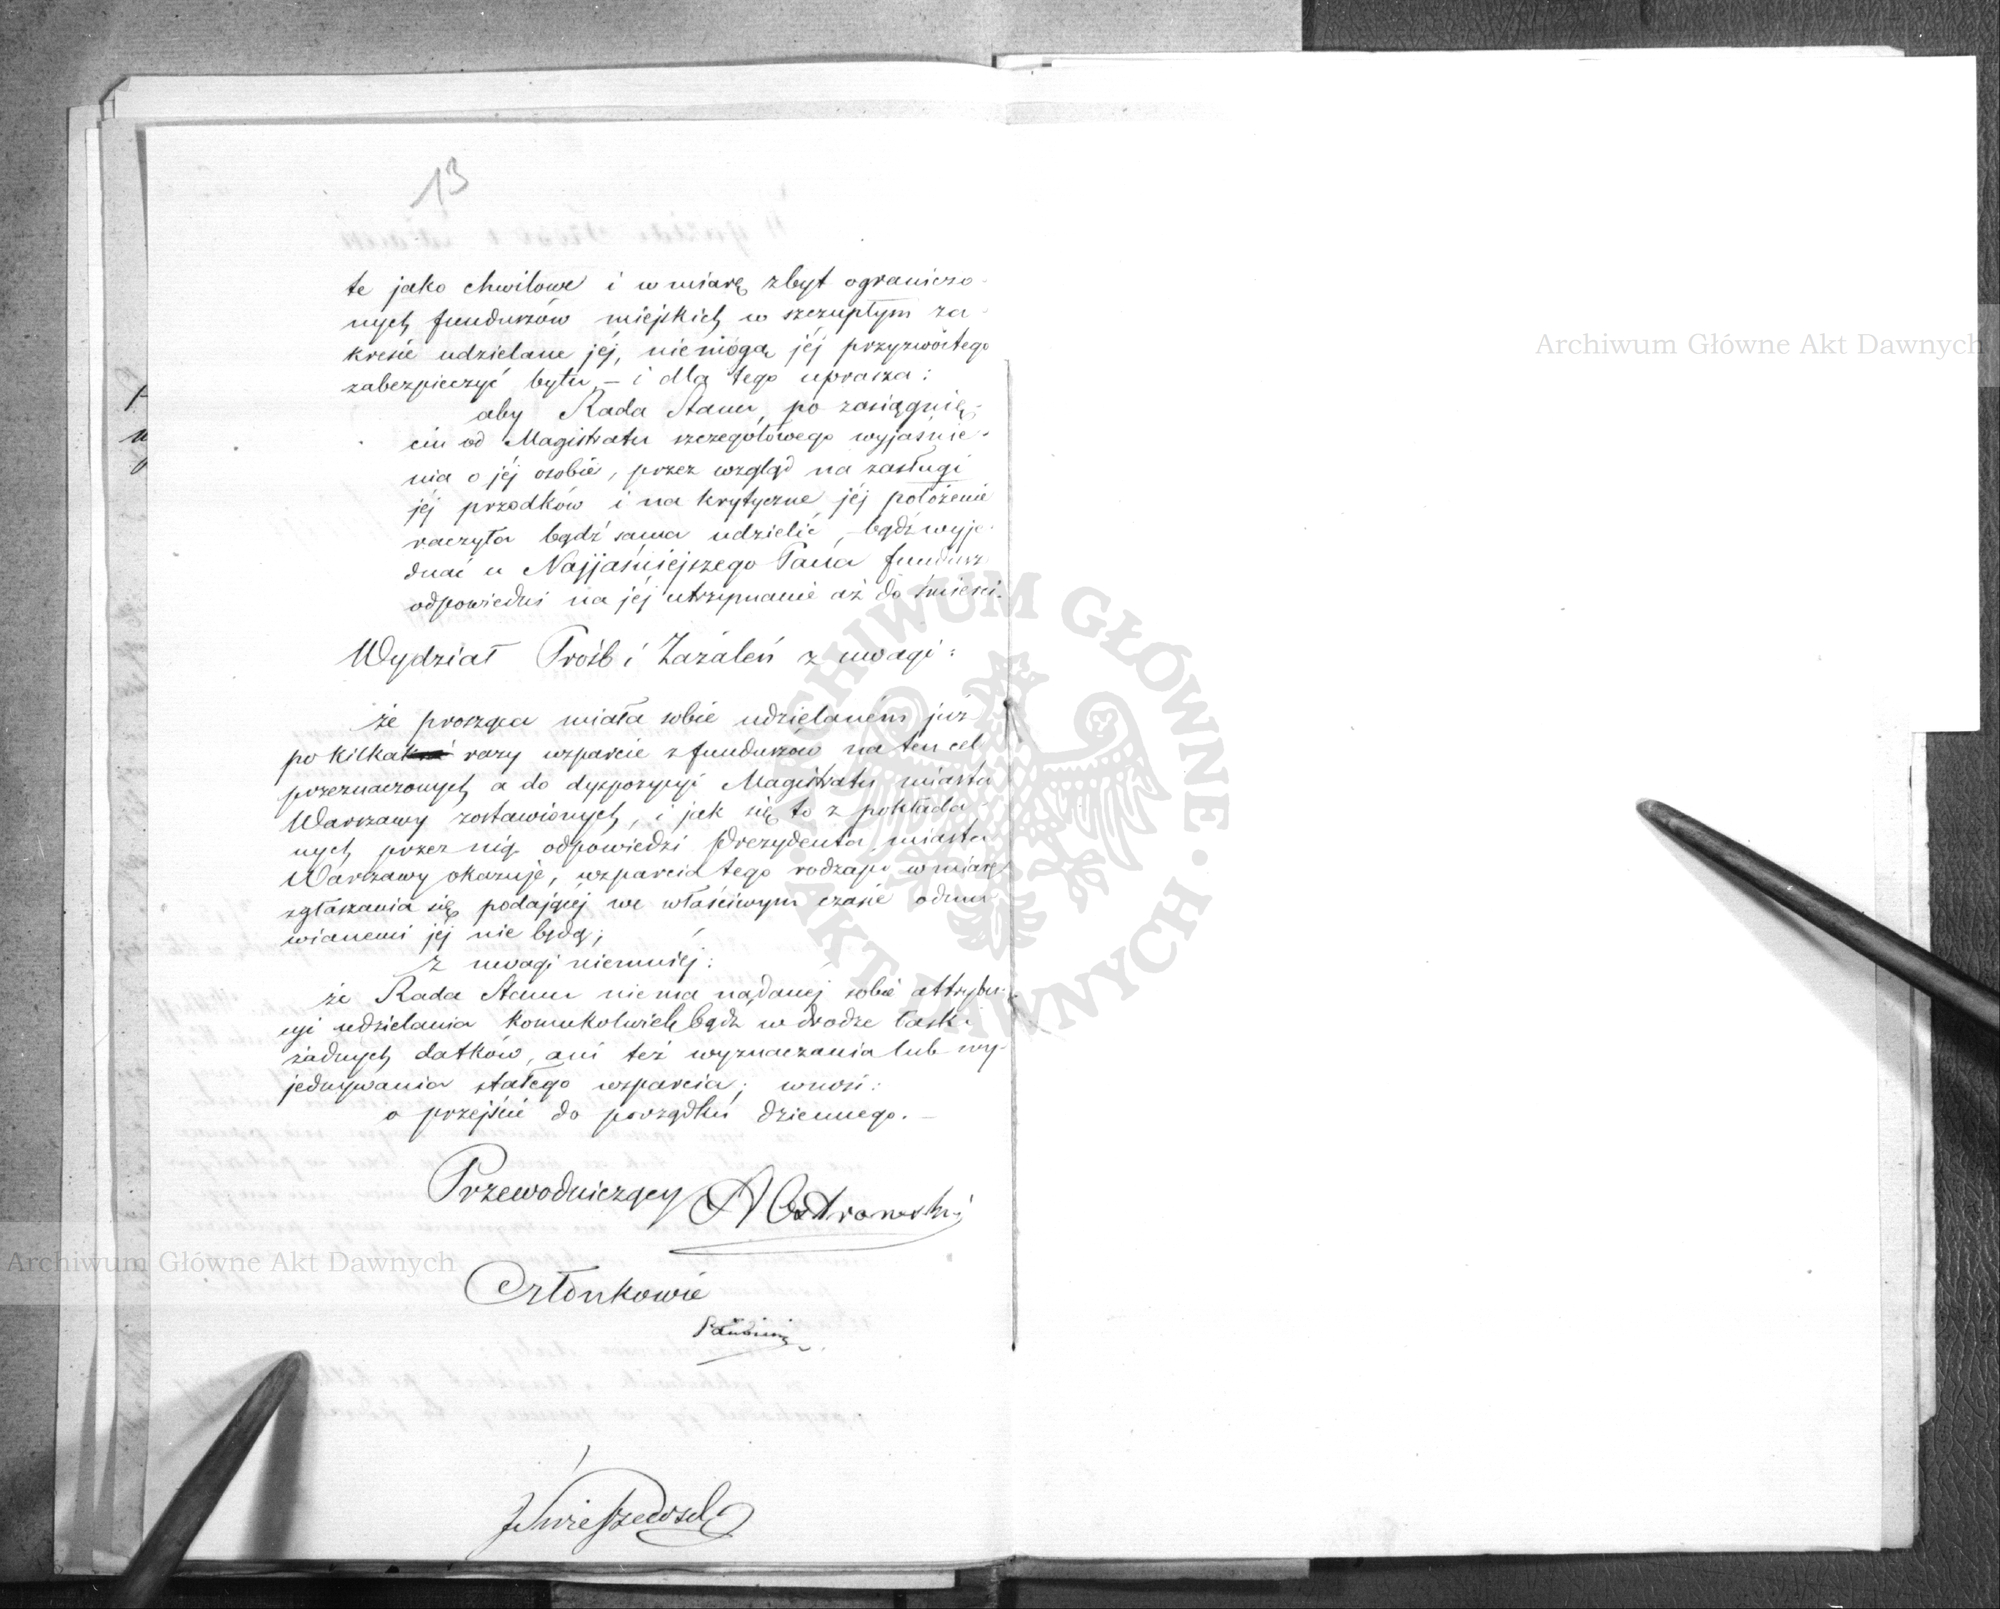 13
te jako chwilowe i w miarę zbyt ograniczo-
nych funduszów miejskich w szczupłym za-
kresie udzielane jéj, niemógą jéj przyzwoitego
zabezpieczyć bytu, – i dla tego uprasza:
aby Rada Stanu, po zasiągnię-
ciu od Magistratu szczegółowego wyjaśnie-
nia o jéj osobie, przez wzgląd na zasługi
jéj przodków i na krytyczne jéj położenie
raczyła bądź sama udzielić, bądź wyje-
dnać u Najjaśniejszego Pana fundusz
odpowiedni na jéj utrzymanie aż do śmierci.
Wydział Próśb i Zażaleń z uwagi:
że prosząca miała sobie udzielaném już
po kilka razy wsparcie z funduszów na ten cel
przeznaczonych, a do dyspozycyi Magistratu miasta
Warszawy zostawionych, i jak się to z pokłada-
nych przez nią odpowiedzi Prezydenta miasta
Warszawy okazuje, wsparcia tego rodzaju w miarę
zgłaszania się podającéj we właściwym czasie odma-
wianemi jéj nie będą;
z uwagi niemniéj:
że Rada Stanu niema nadanéj sobie attrybu-
cyi udzielania komukolwiek bądź w drodze łaski
żadnych datków, ani też wyznaczania lub wy-
jednywania stałego wsparcia; wnosi:
o przejście do porządku dziennego. –
Przewodniczący A Ostrowski
Członkowie
Archiwum Główne Akt Dawnych
Archiwum Główne Akt Dawnych
ARCHIWUM GŁÓWNE
AKT DAWNYCH